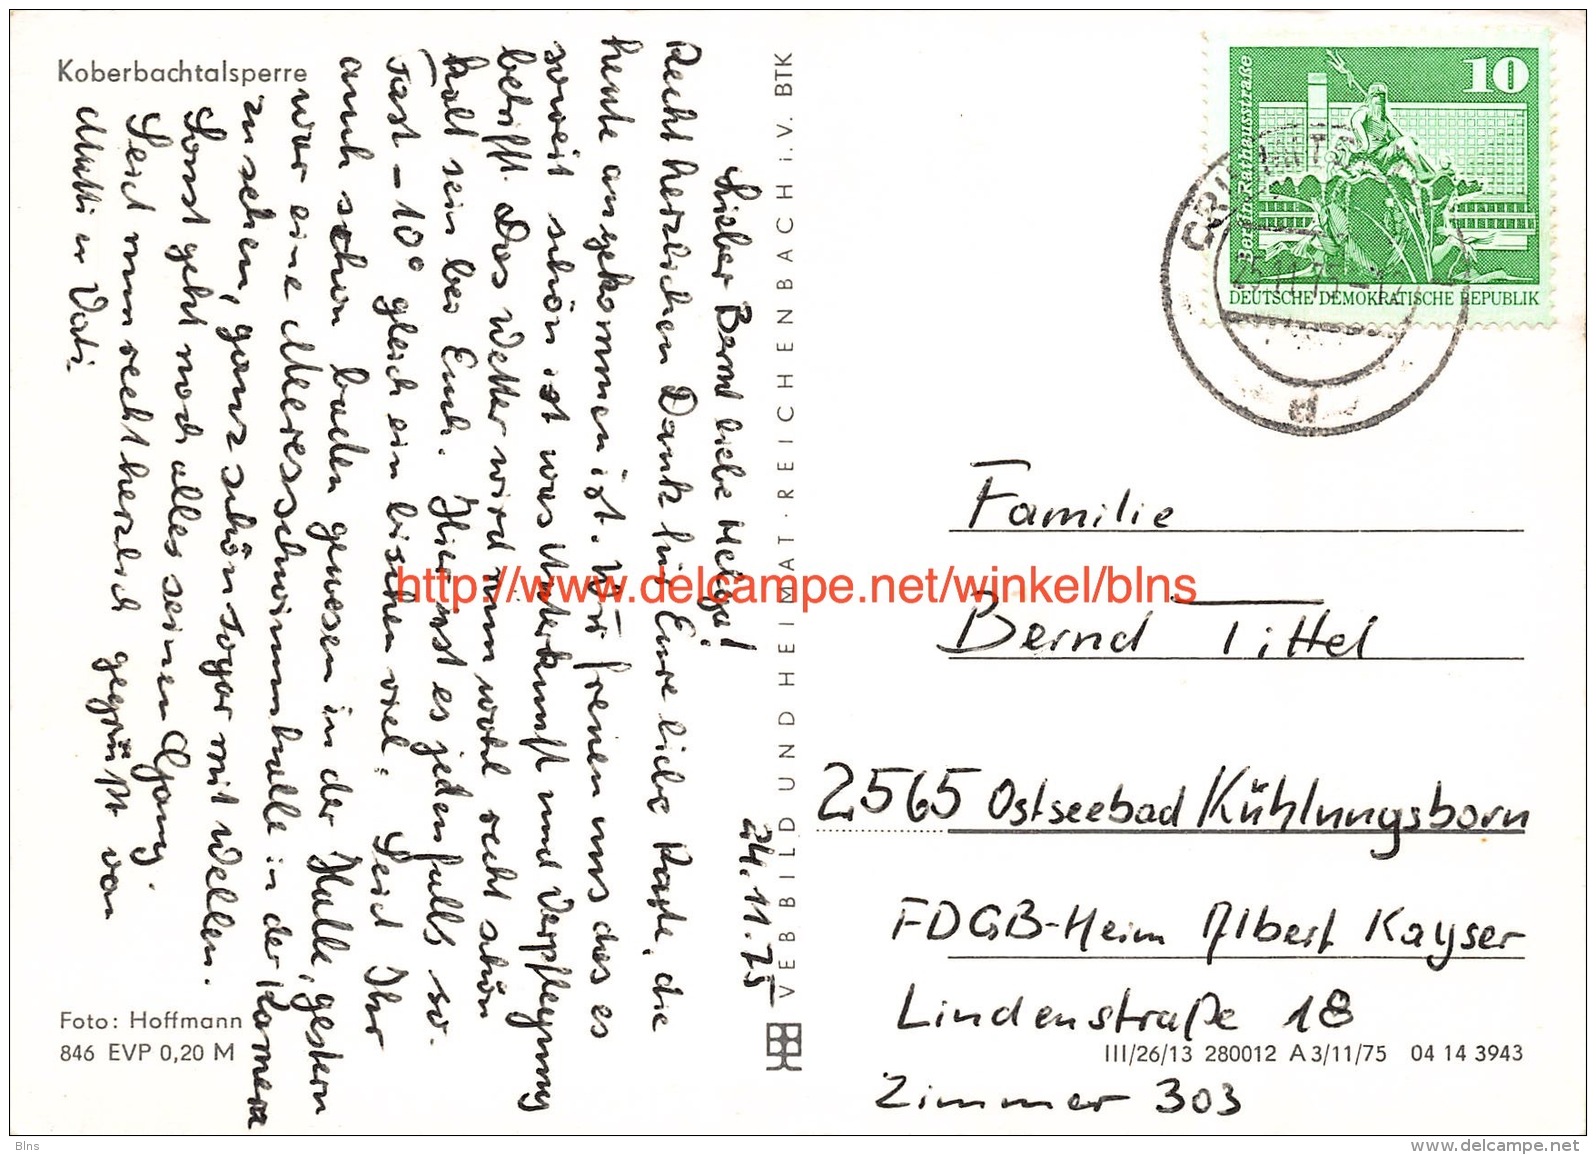 Koberbachtalsperre
24.11.75
Lieber Bernd liebe Helga!
Recht herzlichen Dank für Eure liebe Karte, die
heute angekommen ist. Wir freuen uns das es
soweit schön ist was Unterkunft und Verpflegung
betrifft. Das Wetter wird nun wohl recht schön
kalt sein bei Euch. Hier ist es jedenfalls so.
Fast -10° gleich ein bischen viel. Seid Ihr
auch schon baden gewesen in der Halle, gestern
war eine Meeresschwimmhalle in der Kamera
zu sehen, ganz schön sogar mit Wellen.
Sonst geht noch alles seinen Gang.
Seid nun recht herzlich gegrüßt von
Mutti u Vati.
Foto: Hoffmann
846 EVP 0,20 M
VEB BILD UND HEIMAT · REICHENBACH i.V. BTK
10
Berlin Rathausstraße
DEUTSCHE DEMOKRATISCHE REPUBLIK
d
Familie
Bernd Tittel
2565 Ostseebad Kühlungsborn
FDGB-Heim Albert Kayser
Lindenstraße 18
Zimmer 303
III/26/13 280012 A 3/11/75 04 14 3943
http://www.delcampe.net/winkel/blns
Blns
www.delcampe.net